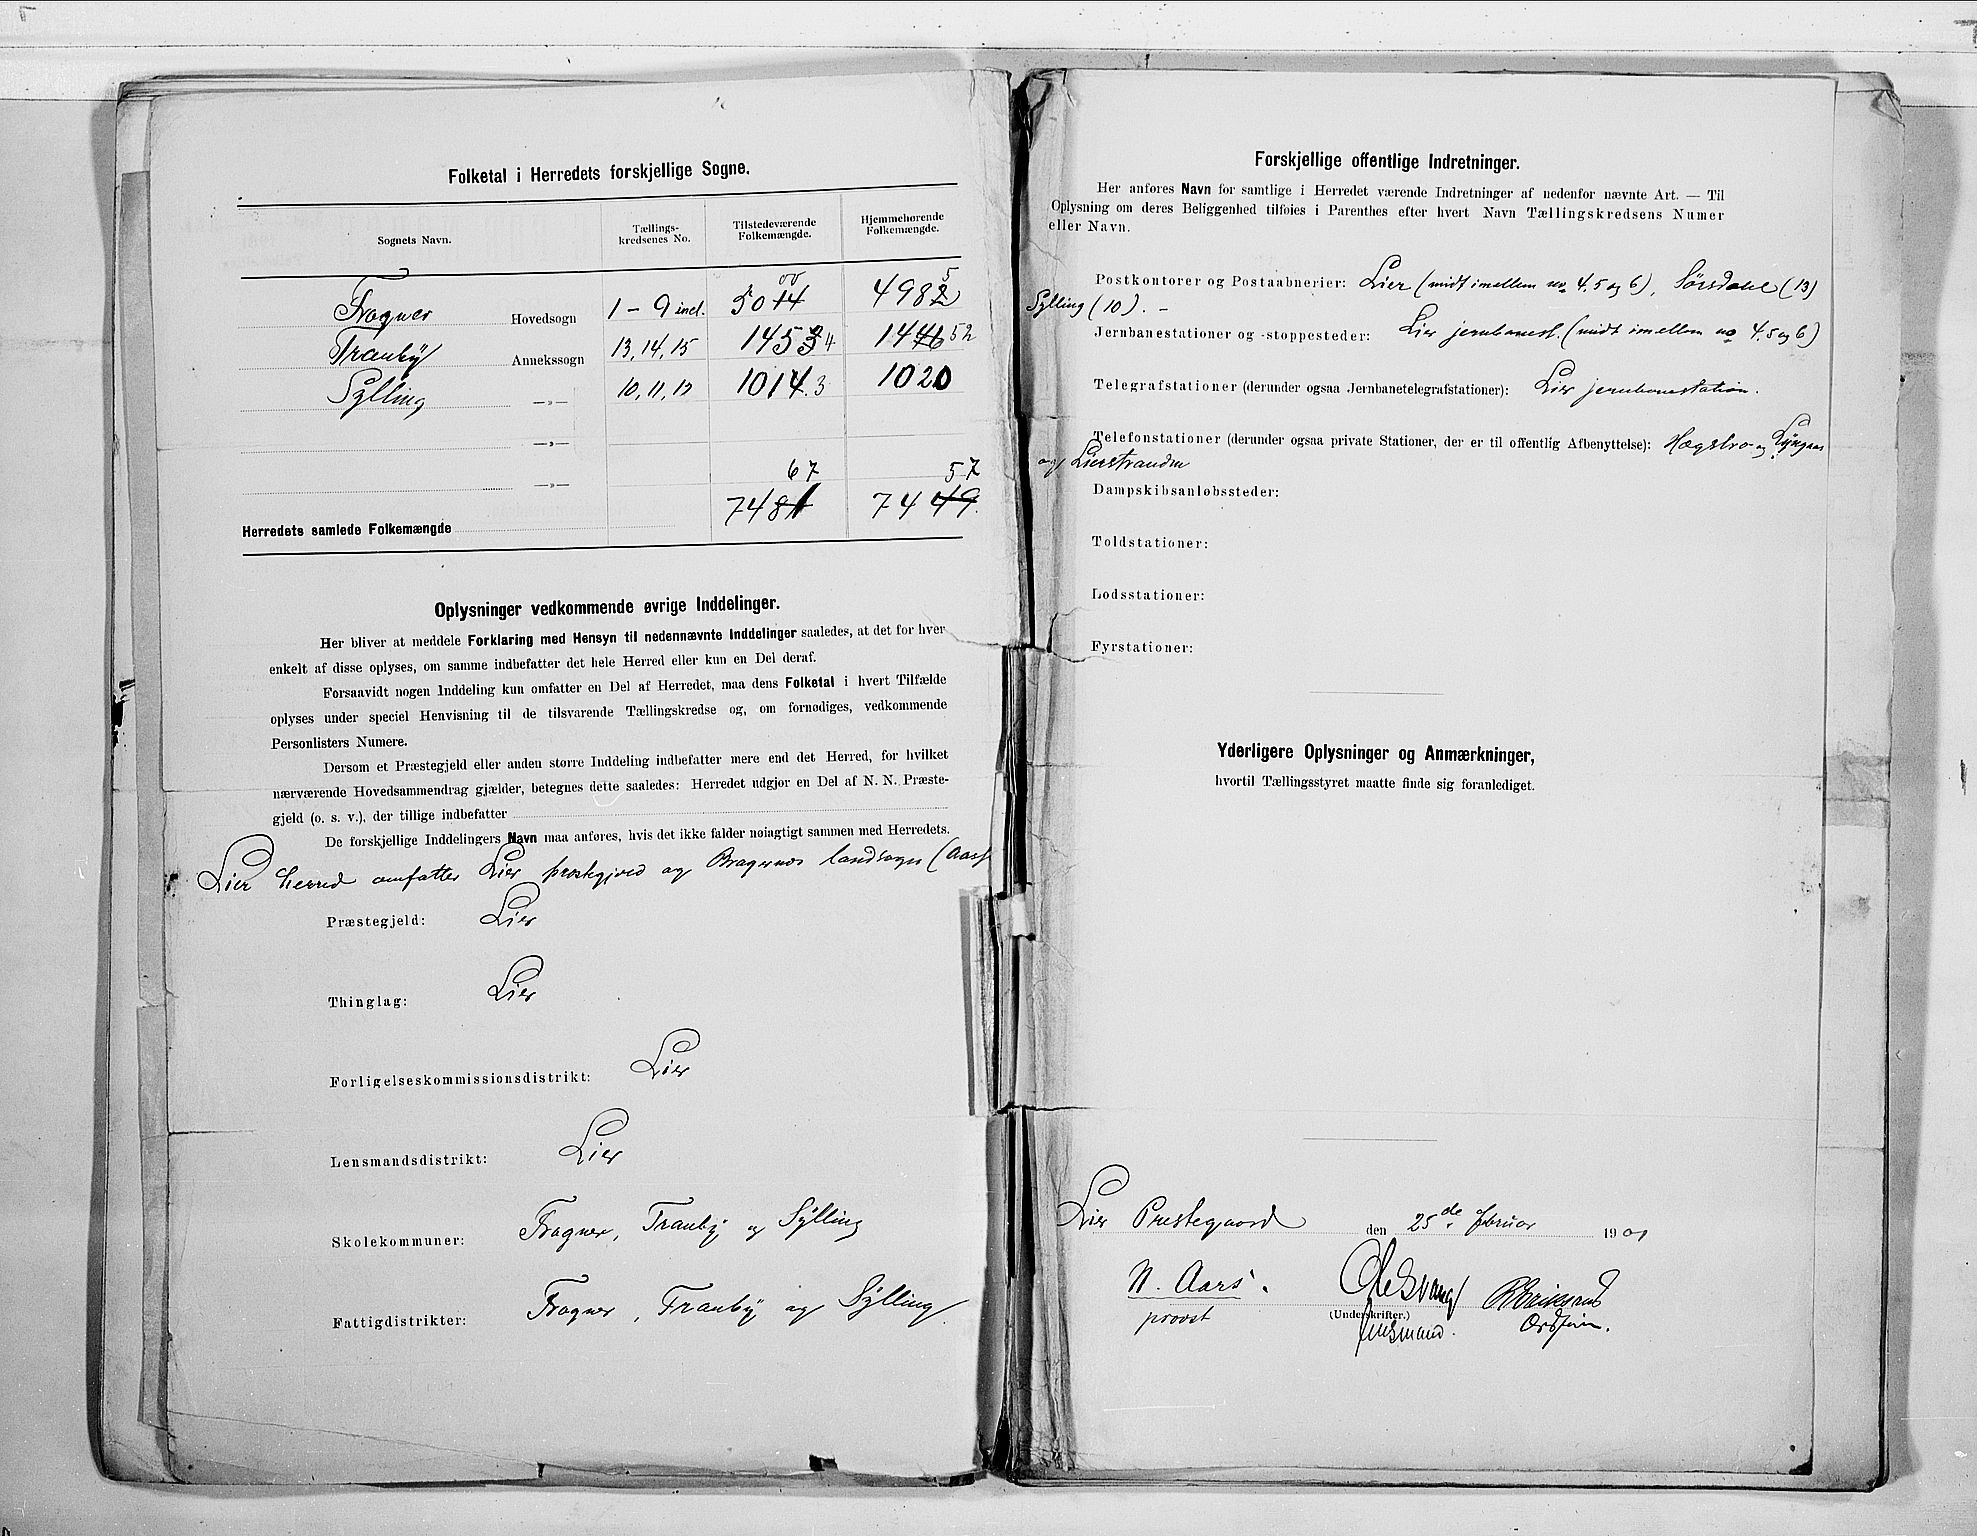 Folketal i Herredets forskjellige Sogne.
Sognets Navn. Tællings-kredsenes No. Tilstedeværende Folkemængde. Hjemmehørende Folkemængde.
Frogner Hovedsogn 1 - 9 incl. 5014 00 4982 5
Tranby Annekssogn 13, 14, 15 1453 4 1446 52
Sylling —„— 10, 11, 12 1014 3 1020
—„—
—„— 67 57
Herredets samlede Folkemængde 7481 7449
Oplysninger vedkommende øvrige Inddelinger.
Her bliver at meddele Forklaring med Hensyn til nedennævnte Inddelinger saaledes, at det for hver
enkelt af disse oplyses, om samme indbefatter det hele Herred eller kun en Del deraf.
Forsaavidt nogen Inddeling kun omfatter en Del af Herredet, maa dens Folketal i hvert Tilfælde
oplyses under speciel Henvisning til de tilsvarende Tællingskredse og, om fornødiges, vedkommende
Personlisters Numere.
Dersom et Præstegjeld eller anden større Inddeling indbefatter mere end det Herred, for hvilket
nærværende Hovedsammendrag gjælder, betegnes dette saaledes: Herredet udgjør en Del af N. N. Præste-
gjeld (o. s. v.), der tillige indbefatter
De forskjellige Inddelingers Navn maa anføres, hvis det ikke falder nøiagtigt sammen med Herredets.
Lier herred omfatter Lier prestegjeld og Bragernes landsogn (Aass
Præstegjeld: Lier
Thinglag: Lier
Forligelseskommissionsdistrikt: Lier
Lensmandsdistrikt: Lier
Skolekommuner: Frogner, Tranby og Sylling
Fattigdistrikter: Frogner, Tranby og Sylling
Forskjellige offentlige Indretninger.
Her anføres Navn for samtlige i Herredet værende Indretninger af nedenfor nævnte Art. — Til
Oplysning om deres Beliggenhed tilføies i Parenthes efter hvert Navn Tællingskredsens Numer
eller Navn.
Postkontorer og Postaabnerier: Lier (midt imellem no 4, 5 og 6), Sørsdahl (13)
Sylling (10). -
Jernbanestationer og -stoppesteder: Lier jernbanest. (midt imellem no 4, 5 og 6)
Telegrafstationer (derunder ogsaa Jernbanetelegrafstationer): Lier jernbanestation.
Telefonstationer (derunder ogsaa private Stationer, der er til offentlig Afbenyttelse): Hægsbro og
og Lierstranden
Dampskibsanløbssteder:
Toldstationer:
Lodsstationer:
Fyrstationer:
Yderligere Oplysninger og Anmærkninger,
hvortil Tællingsstyret maatte finde sig foranlediget.
Lier Prestegaard den 25de februar 1901
N. Aars. Ole Svang
provst (Underskrifter.) Ordfører.
lensmand.